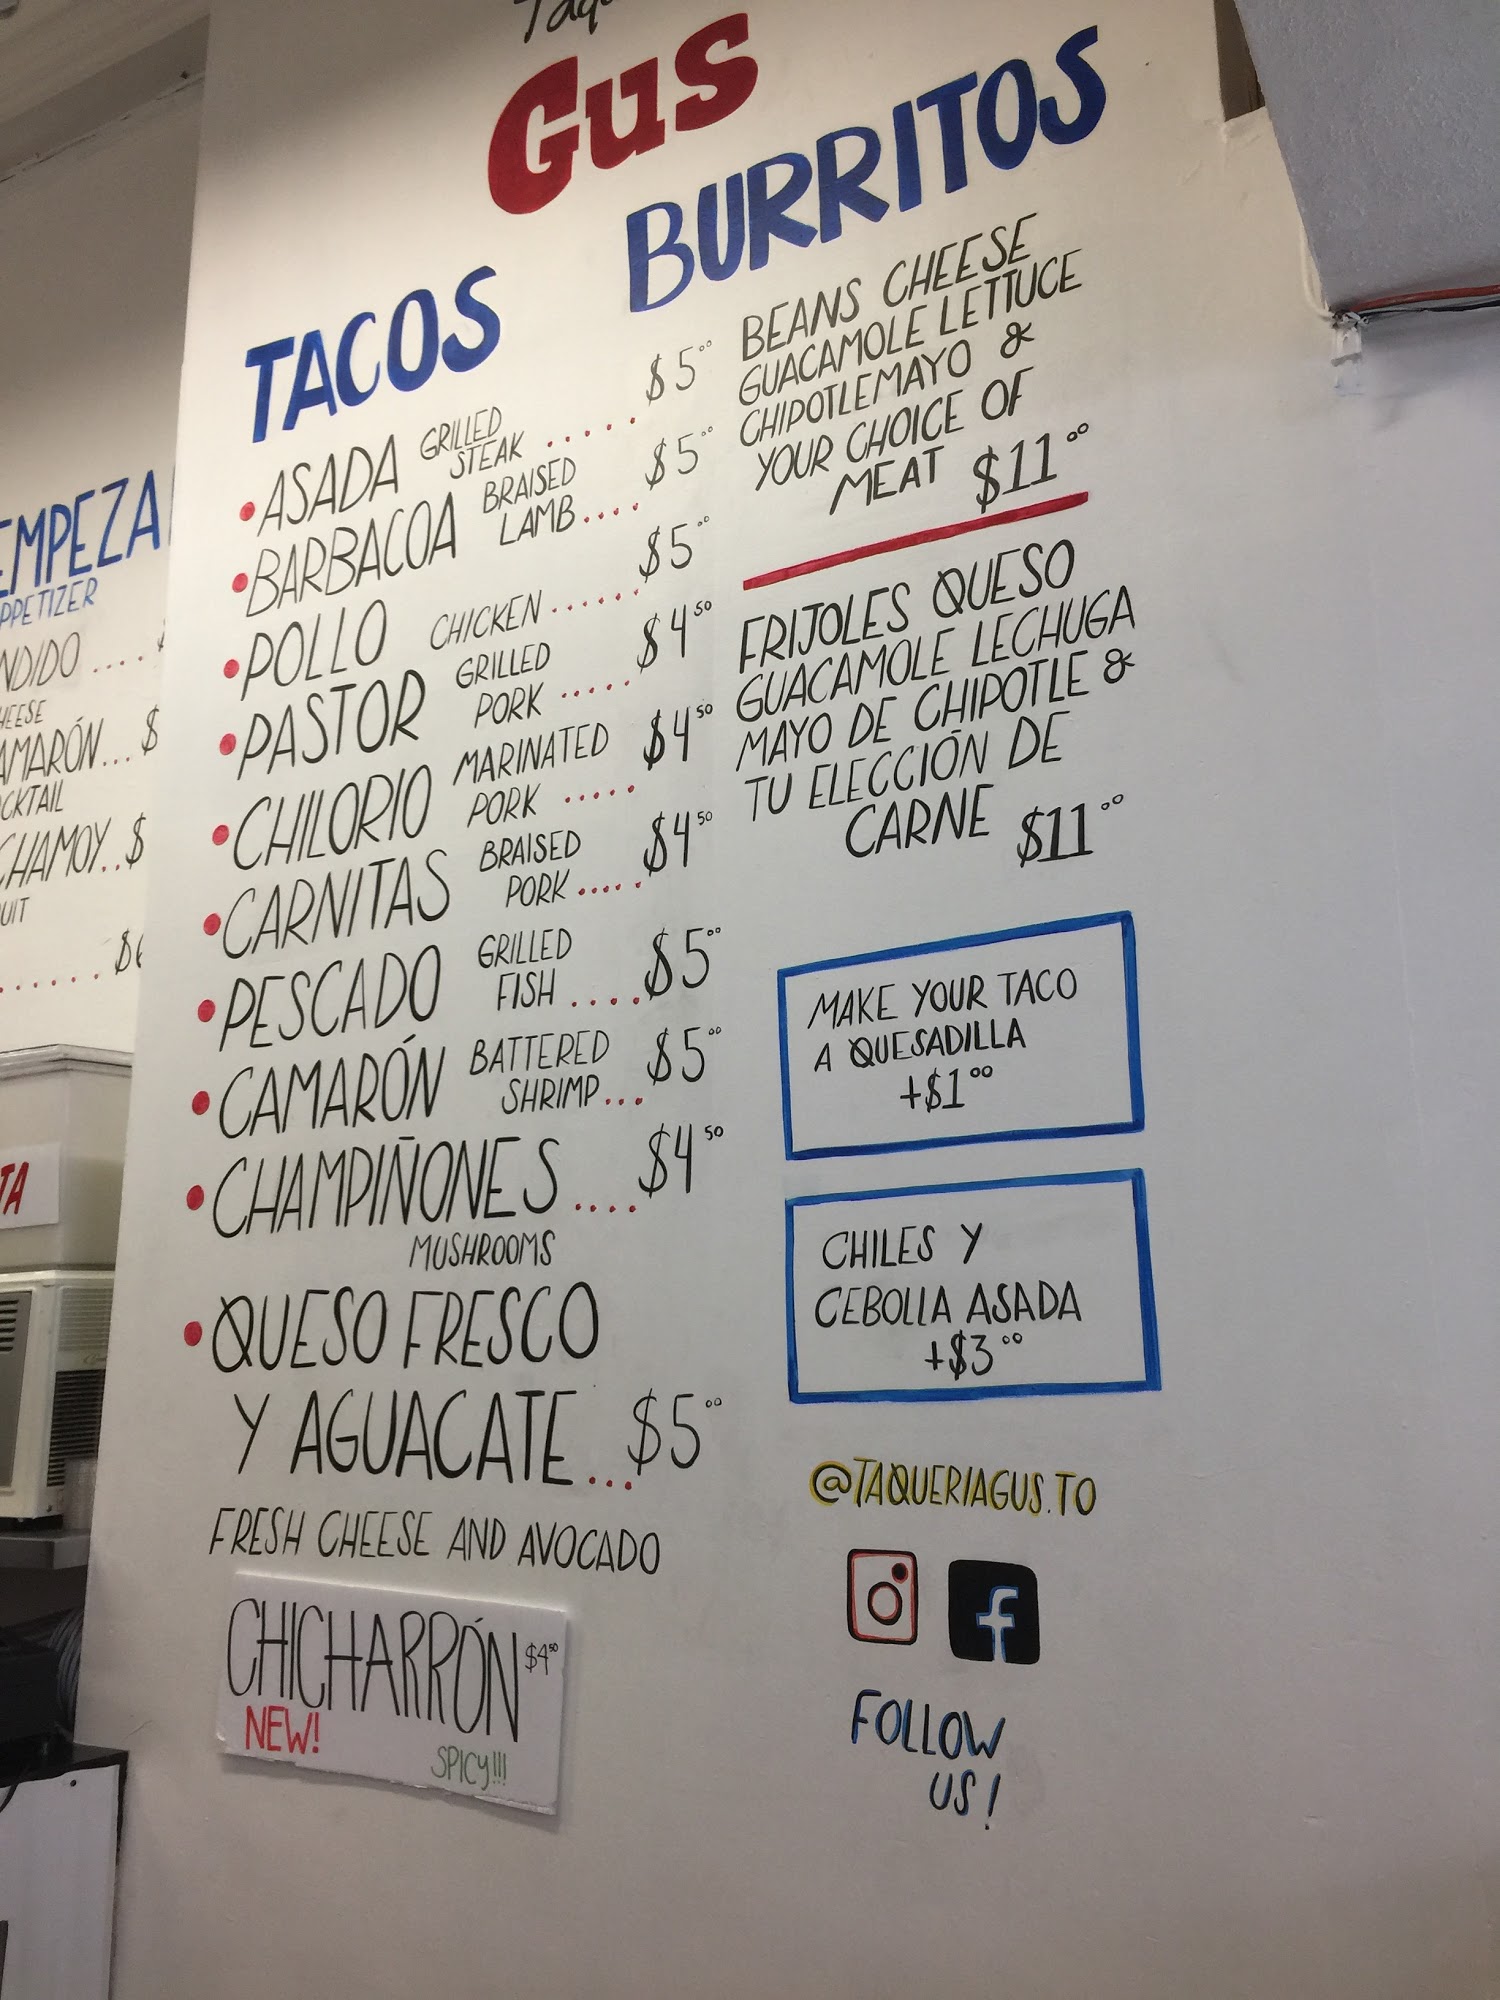 Gus
TACOS
• ASADA GRILLED STEAK ...... $5.00
• BARBACOA BRAISED LAMB.... $5.00
• POLLO CHICKEN ...... $5.00
• PASTOR GRILLED PORK ..... $4.50
• CHILORIO MARINATED PORK ..... $4.50
• CARNITAS BRAISED PORK ..... $4.50
• PESCADO GRILLED FISH .... $5.00
• CAMARÓN BATTERED SHRIMP... $5.00
• CHAMPIÑONES .... $4.50
MUSHROOMS
• QUESO FRESCO
Y AGUACATE ... $5.00
FRESH CHEESE AND AVOCADO
CHICHARRÓN $4.50
NEW!
SPICY!!!
BURRITOS
BEANS CHEESE
GUACAMOLE LETTUCE
CHIPOTLEMAYO &
YOUR CHOICE OF
MEAT $11.00
FRIJOLES QUESO
GUACAMOLE LECHUGA
MAYO DE CHIPOTLE &
TU ELECCIÓN DE
CARNE $11.00
MAKE YOUR TACO
A QUESADILLA
+$1.00
CHILES Y
CEBOLLA ASADA
+$3.00
@TAQUERIAGUS.TO
FOLLOW
US!